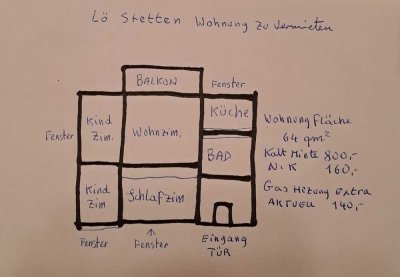 Lö Stetten Wohnung zu vermieten
BALKON
Fenster
Kind
Zim.
Wohnzim.
Küche
Fenster
BAD
Kind
Zim
Schlafzim.
Fenster
Fenster
Eingang
TÜR
Wohnung fläche
64 qm²
Kalt Miete 800,-
N.K 160,-
Gas Heizung Extra
AKTUELL 140,-